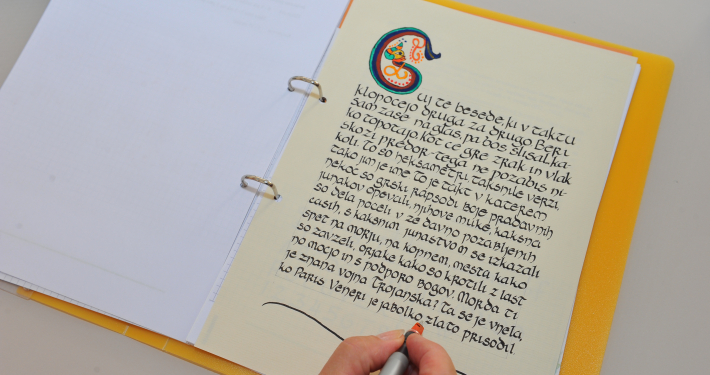 Čuj te besede, ki v taktu
klopočejo druga za drugo. Beri
sam zase naglas, pa boš slišal, ka-
ko topotajo, kot če gre zrak in vlak
skozi predor. Tega ne pozabiš ni-
koli. To so heksametri, takšni le verzi,
tako jim je ime. To je takt, v katerem
nekoč so grški rapsodi boje pradavnih
junakov opevali, njihove muke, kakšna
so dela počeli v že davno pozabljenih
časih, s kakšnim junaštvom se izkazali
spet na morju, na kopnem, mesta kako
so zavzeli, orjake kako so krotili z last
no močjo in s podporo bogov. Morda ti
je znana vojna Trojanska? Ta se je vnela,
ko Paris Veneri je jabolko zlato prisodil.